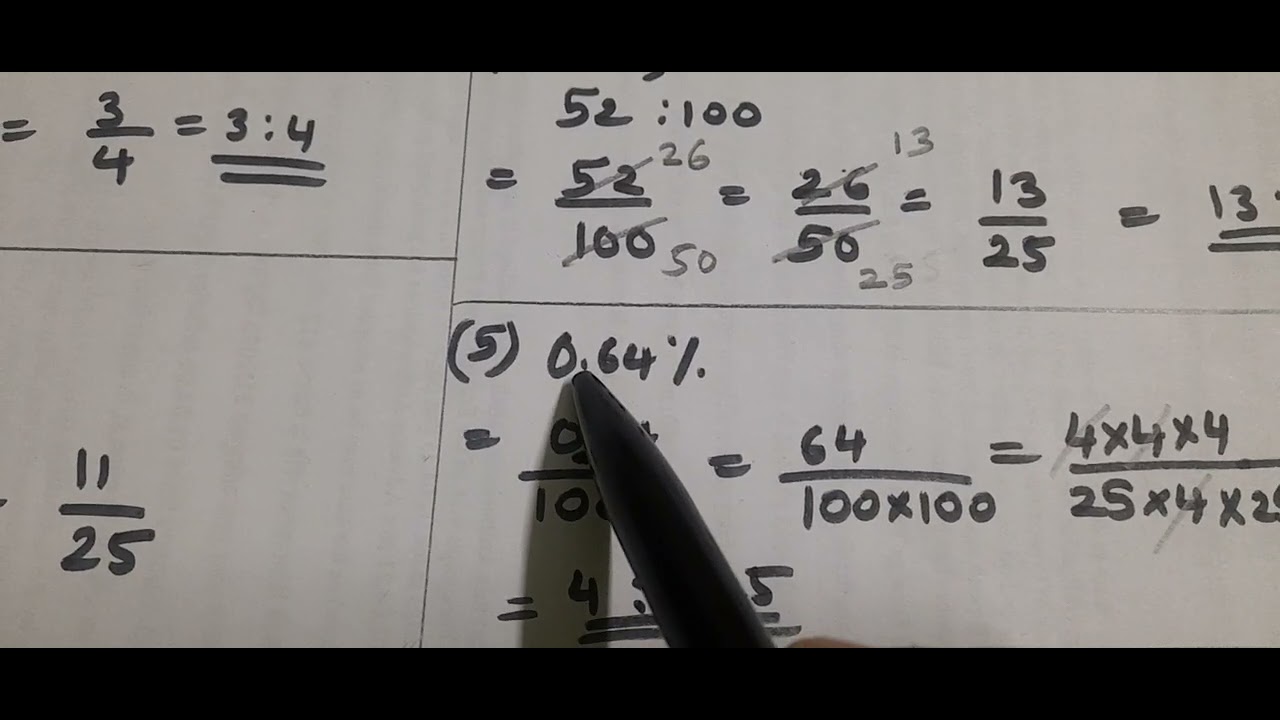 = 3/4 = 3:4
11/25
52 :100
= 52/100 26 50 = 26/50 13 25 = 13/25 = 13
(5) 0.64%
= = 64/100×100 = 4×4×4/25×4×
= 4 : 5